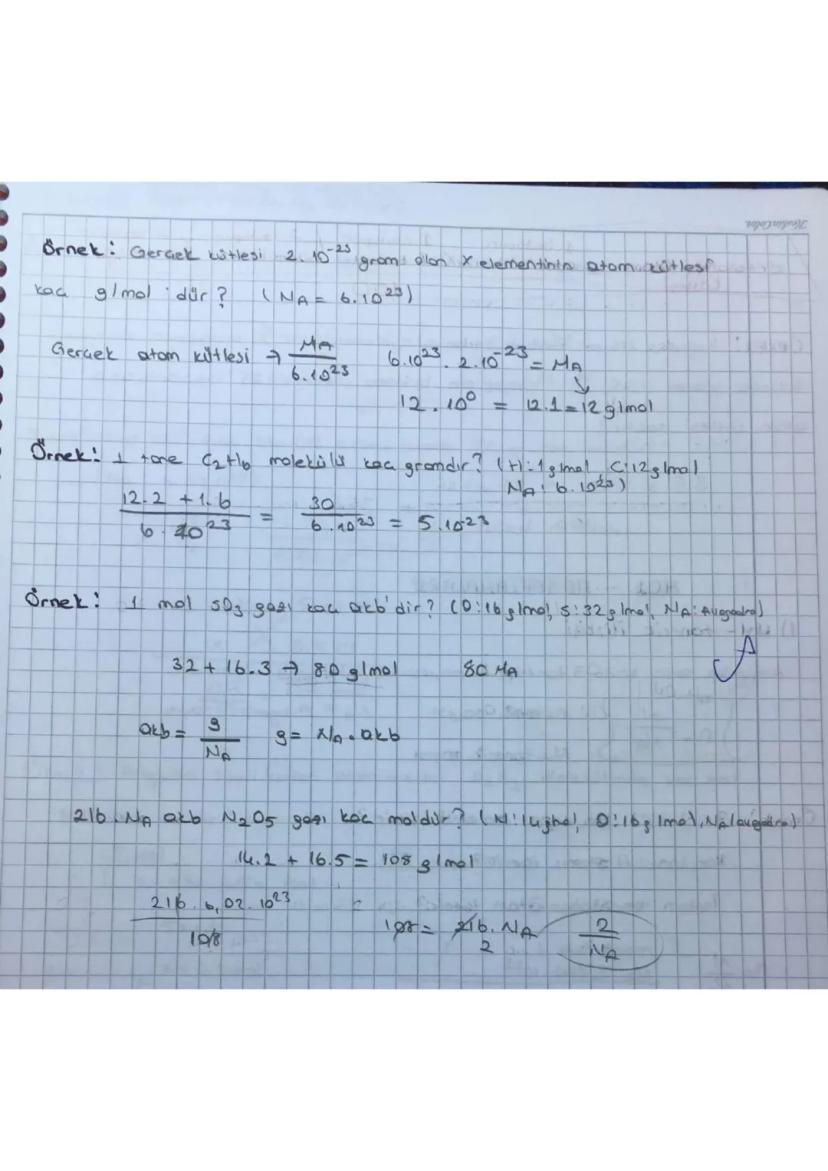 Örnek: Gerçek kütlesi 2.10⁻²³ gram olan X elementinin atom kütlesi
kaç g/mol dür? (NA = 6.10²³)
Gerçek atom kütlesi → MA / 6.10²³ 6.10²³ . 2.10⁻²³ = MA
12.10⁰ = 12.1 = 12 g/mol
Örnek: 1 tane C₂H₆ molekülü kaç gramdır? (H:1g/mol, C:12g/mol
NA: 6.10²³)
12.2 + 1.6 / 6.10²³ = 30 / 6.10²³ = 5.10⁻²³
Örnek: 1 mol SO₃ gazı kaç akb'dir? (O:16g/mol, S:32g/mol, NA: Avogadro)
32 + 16.3 → 80 g/mol 80 MA
akb = g / NA g = NA . akb
216.NA akb N₂O₅ gazı kaç moldür? (N:14g/mol, O:16g/mol, NA(avogadro)
14.2 + 16.5 = 108 g/mol
216 . 6,02.10²³ / 108 = 108 = 216.NA 2 2 / NA